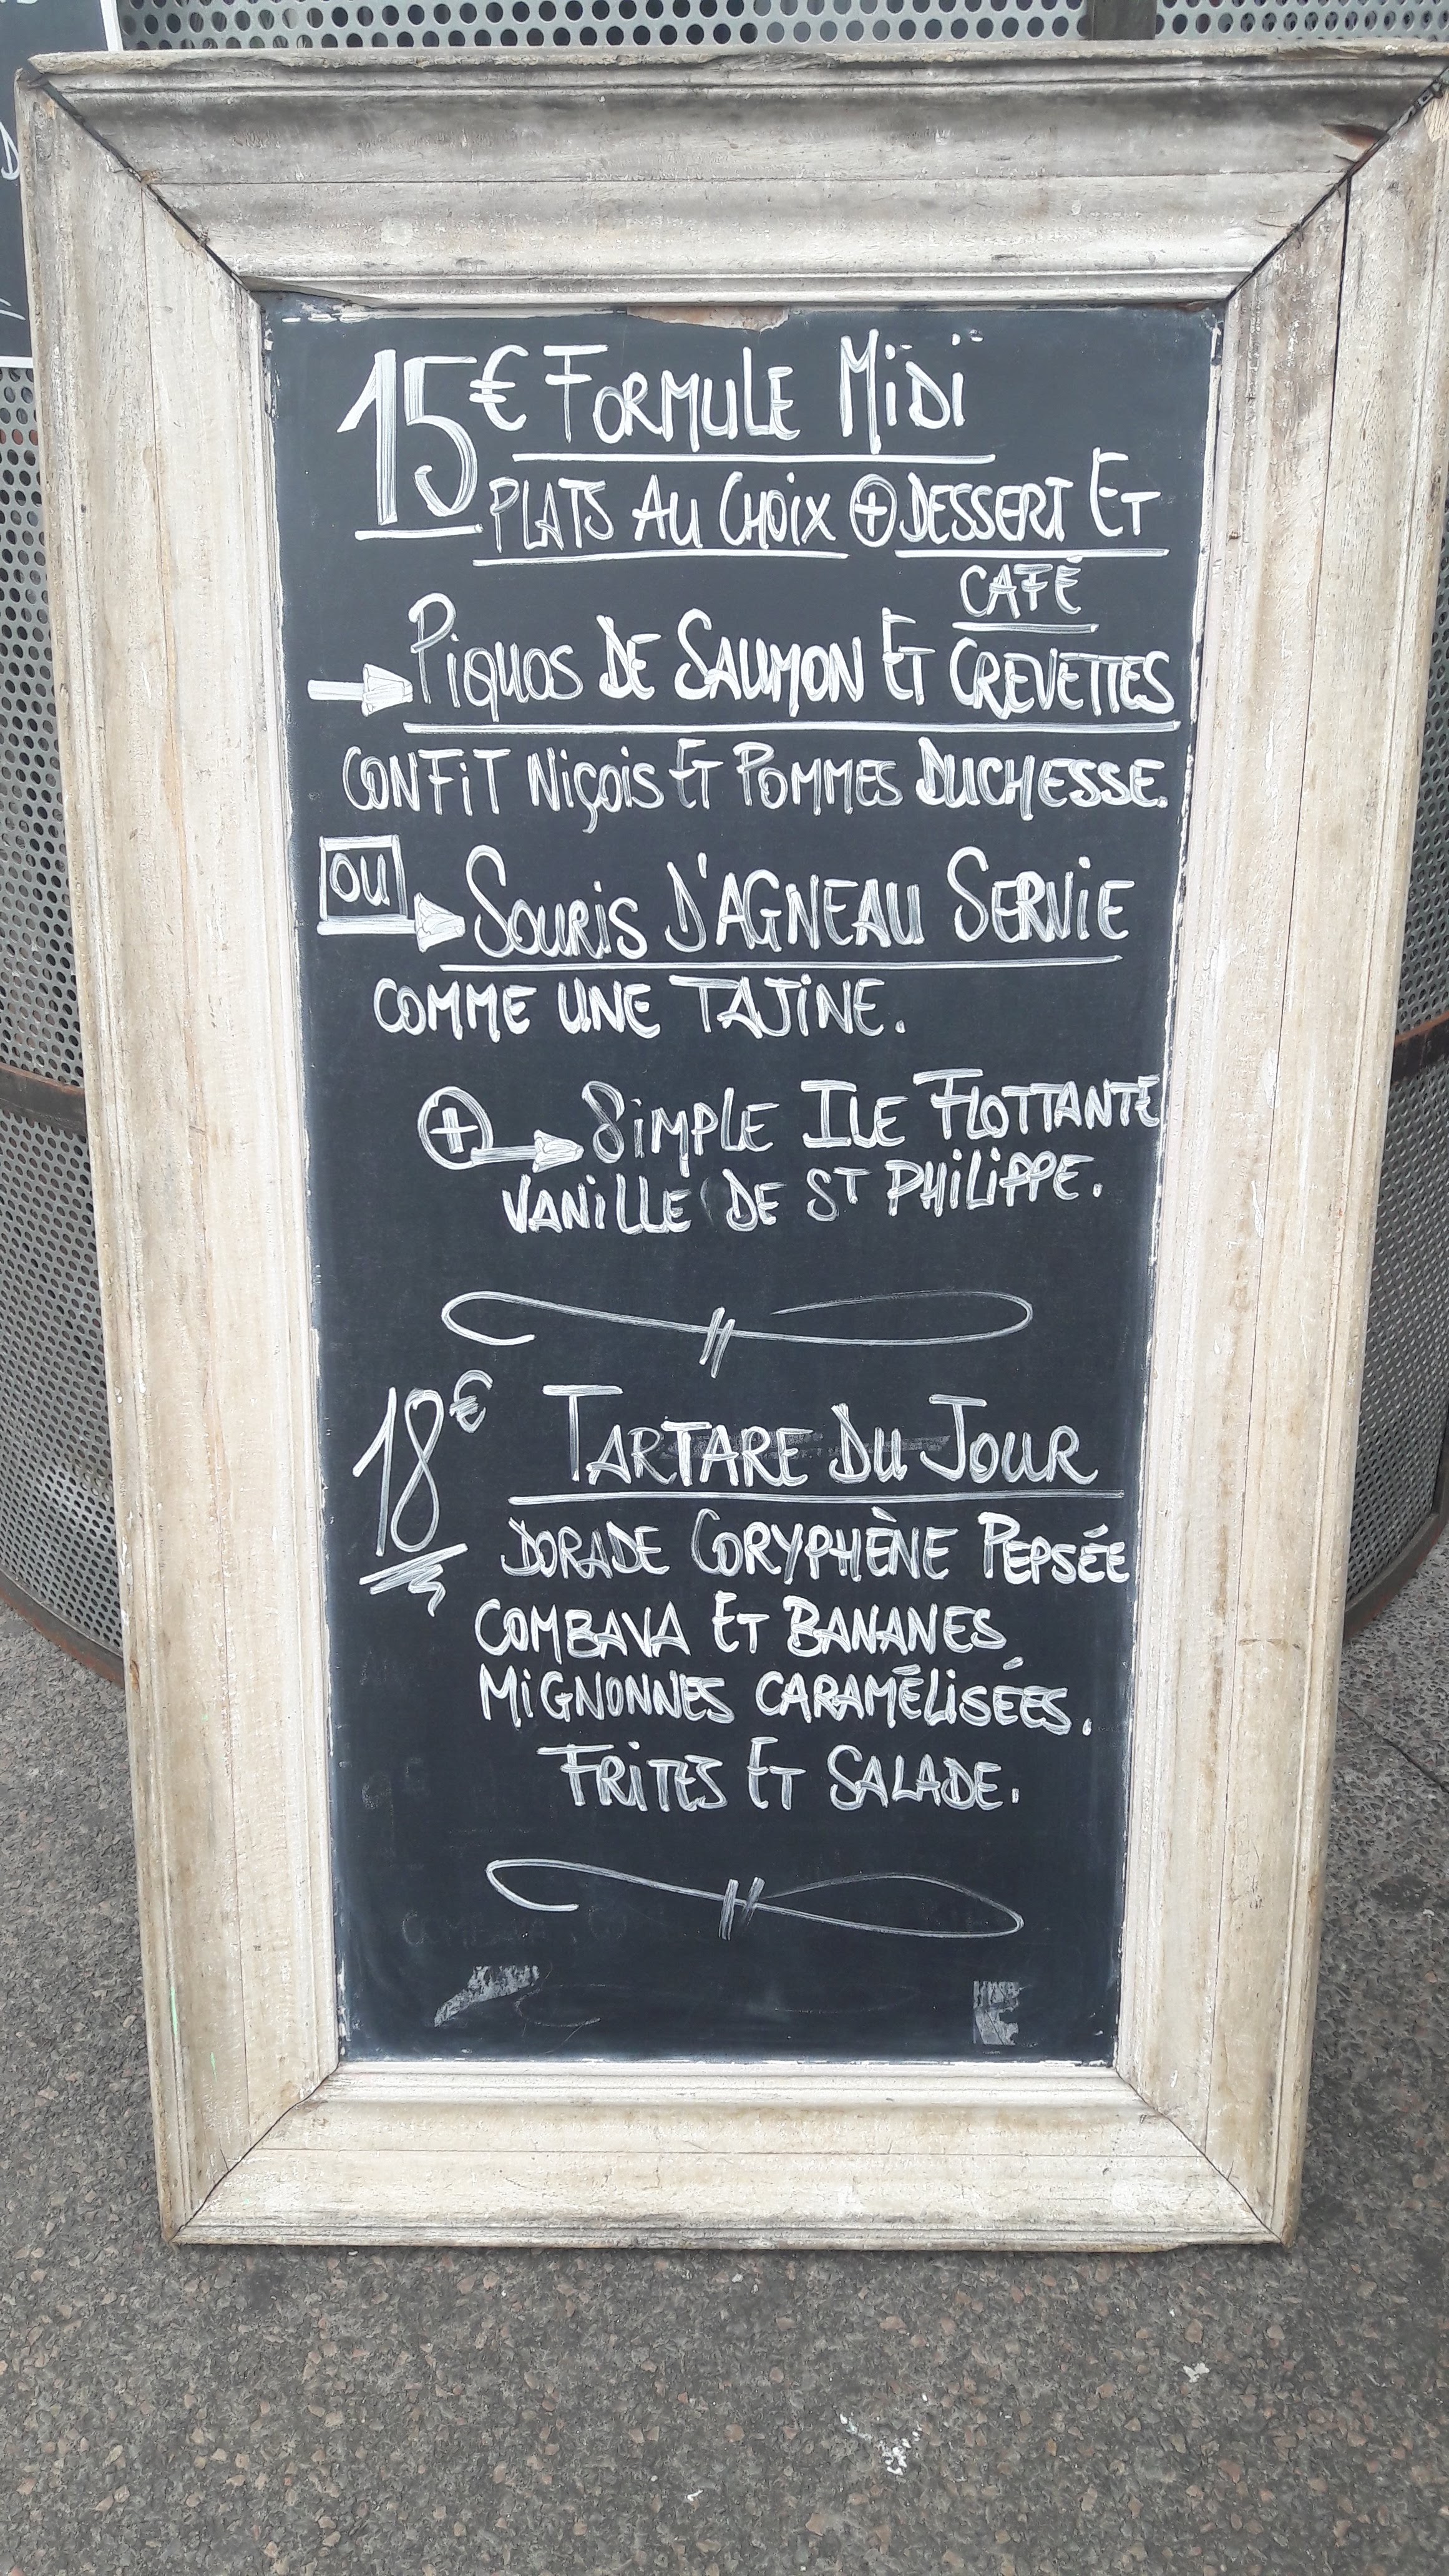 15€ FORMULE MIDI
PLATS AU CHOIX + DESSERT ET
CAFÉ
PIQUOS DE SAUMON ET CREVETTES
CONFIT NIÇOIS ET POMMES DUCHESSE.
OU SOURIS D'AGNEAU SERVIE
COMME UNE TAJINE.
+ SIMPLE ILE FLOTTANTE
VANILLE DE ST PHILIPPE.
18€ TARTARE DU JOUR
DORADE CORYPHÈNE PEPSÉE
COMBAVA ET BANANES
MIGNONNES CARAMÉLISÉES.
FRITES ET SALADE.